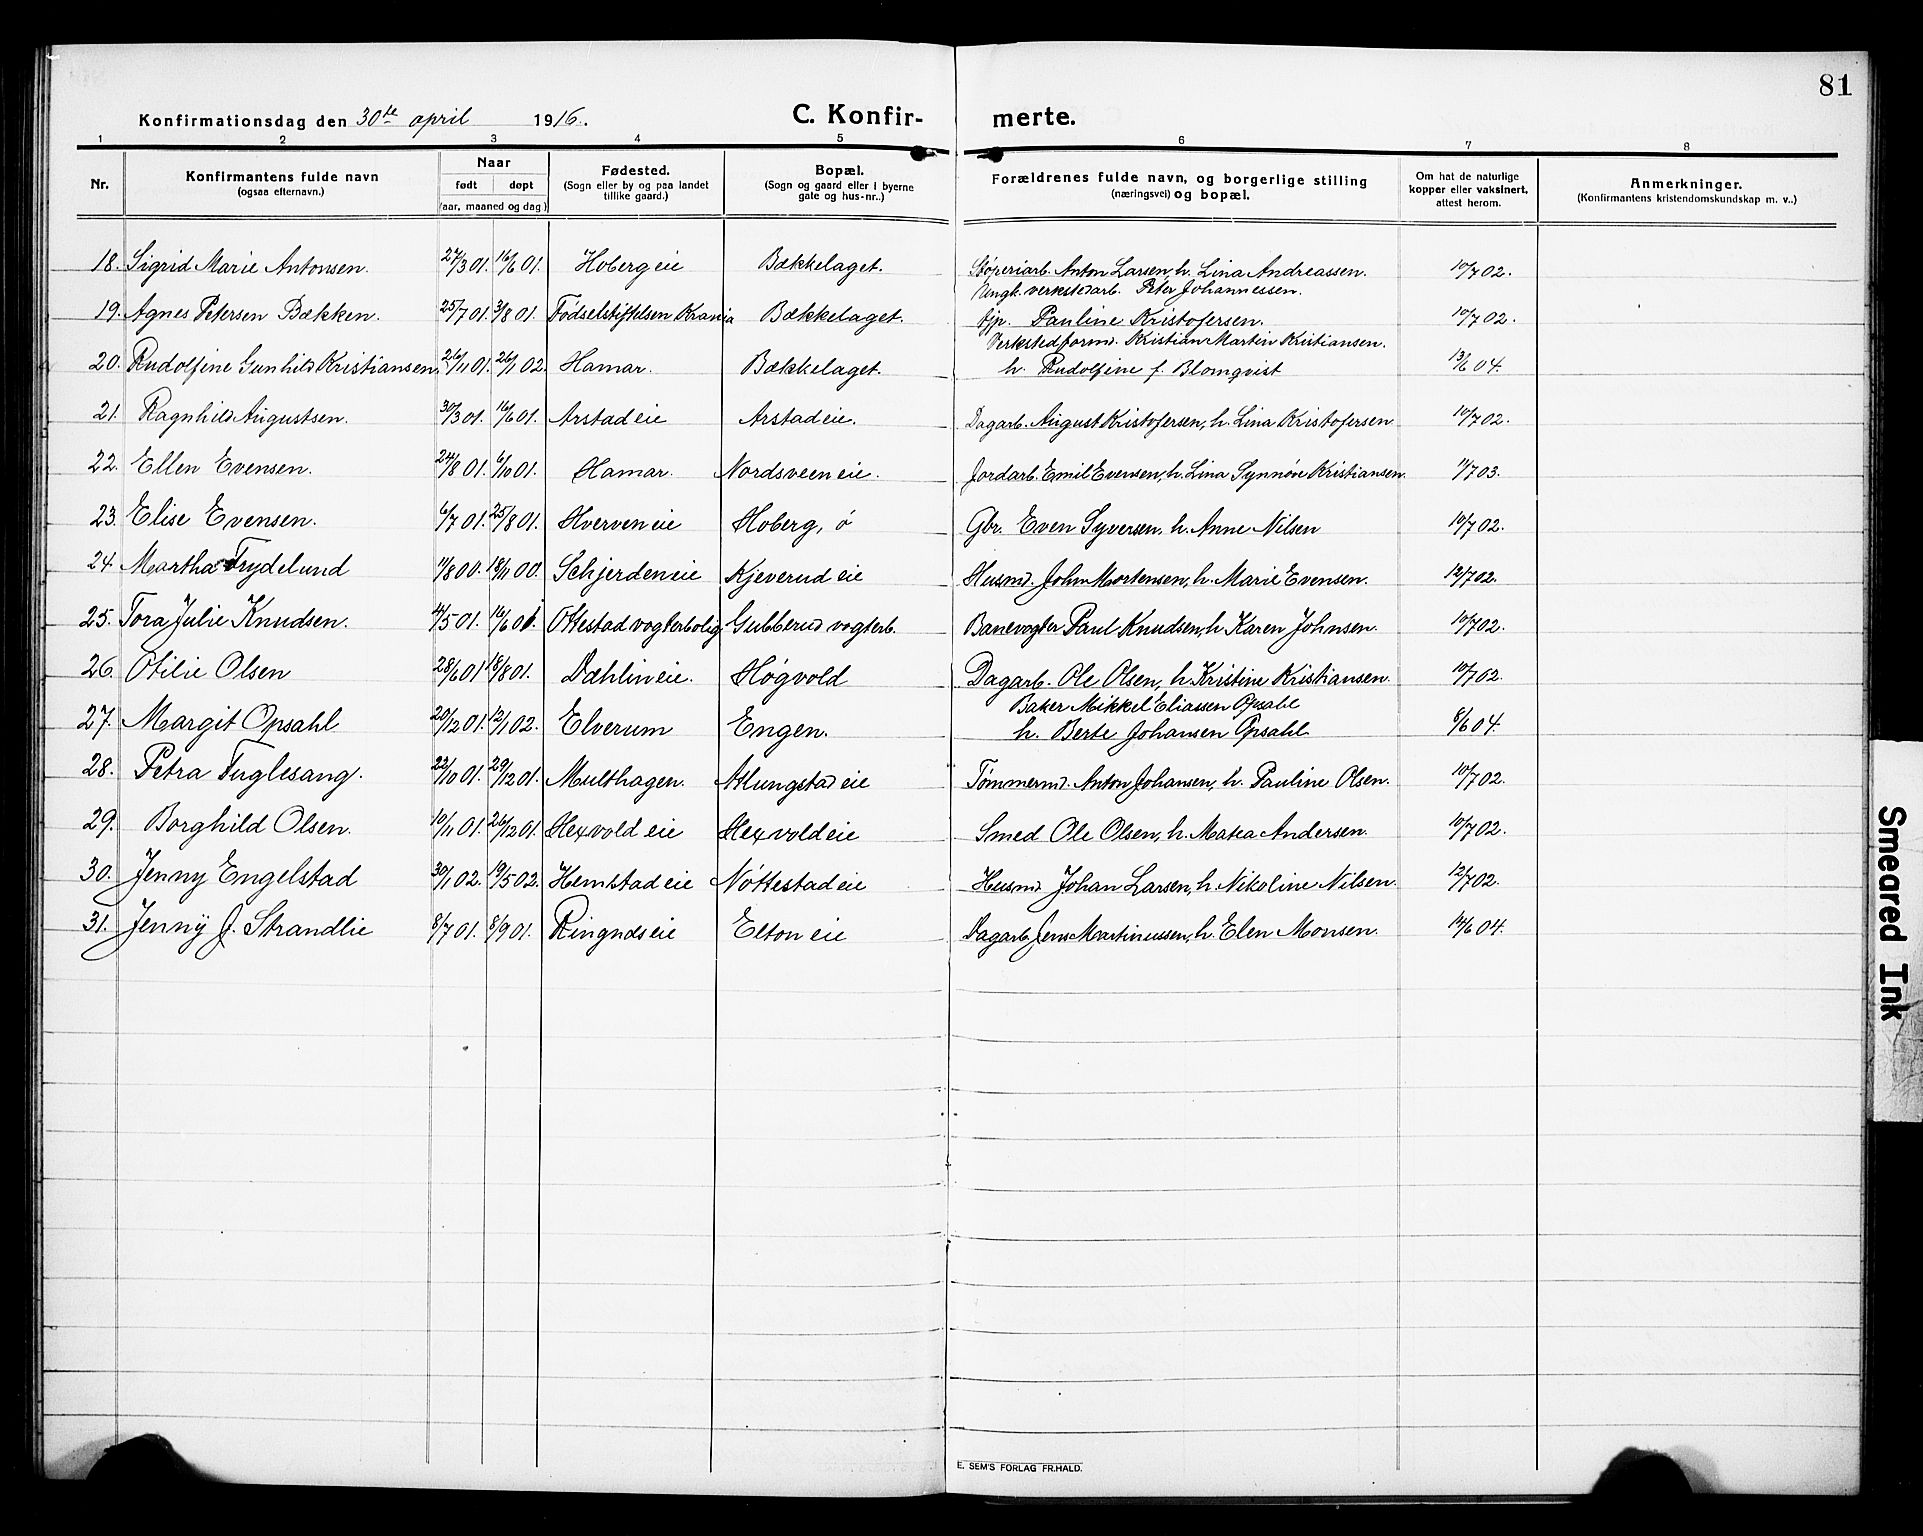 81
Konfirmationsdag den 30te april 1916.
C. Konfir- merte.
1 2 3 4 5 6 7 8
Nr.
Konfirmantens fulde navn
(ogsaa efternavn.)
Naar
født døpt
(aar, maaned og dag.)
Fødested.
(Sogn eller by og paa landet
tillike gaard.)
Bopæl.
(Sogn og gaard eller i byerne
gate og hus-nr..)
Forældrenes fulde navn, og borgerlige stilling
(næringsvei) og bopæl.
Om hat de naturlige
kopper eller vaksinert,
attest herom.
Anmerkninger.
(Konfirmantens kristendomskundskap m. v..)
18. Sigrid Marie Antonsen. 27/3 01. 16/6 01. Hoberg eie Bækkelaget. Støperiarb. Anton Larsen, h. Lina Andreassen. 10/7 02.
Ungk. verkstedarb. Peter Johannessen.
19. Agnes Petersen Bækken. 25/7 01. 3/8 01. Fødselstiftelsen Krania Bækkelaget. tjp. Pauline Kristofersen. 10/7 02.
Verkstedformd. Kristian Martin Kristiansen.
20. Rudolfine Gunhild Kristiansen. 26/11 01. 26/1 02 Hamar. Bækkelaget. h. Rudolfine f. Blomqvist 13/6 04.
21. Ragnhild Augustsen. 30/3 01. 16/6 01. Arstad eie Arstad eie. Dagarb. August Kristofersen, h. Lina Kristofersen 10/7 02.
22. Ellen Evensen. 24/8 01. 6/10 01. Hamar. Nordsveen eie. Jordarb. Emil Evensen, h. Lina Synnøve Kristiansen. 11/7 03.
23. Elise Evensen. 6/7 01. 25/8 01. Hverven eie Hoberg, ø Gbr. Even Syversen, h. Anne Nilsen 10/7 02.
24. Martha Frydelund 11/8 00. 18/11 00. Schjerden eie Kjeverud eie Husmd. John Mortensen, h. Marie Evensen. 12/7 02.
25. Tora Julie Knudsen. 4/5 01. 16/6 01. Ottestad vogterbolig. Gubberud vogterb. Banevogter Paul Knudsen, h. Karen Johnsen. 10/7 02.
26. Otilie Olsen 28/6 01 18/8 01. Dæhlin eie. Høgvold Dagarb. Ole Olsen, h. Kristine Kristiansen. 10/7 02.
Baker Mikkel Eliassen Opsahl
27. Margit Opsahl 20/12 01. 12/1 02. Elverum Engen. h. Berte Johansen Opsahl. 8/6 04.
28. Petra Fuglesang. 22/10 01. 29/12 01. Multhagen. Atlungstad eie Tømmermd. Anton Johansen, h. Pauline Olsen. 10/7 02.
29. Borghild Olsen. 10/11 01. 26/12 01. Hexvold eie Hexvold eie Smed Ole Olsen, h. Matea Andersen. 10/7 02.
30. Jenny Engelstad 30/1 02. 19/5 02. Hemstad eie Nøttestad eie Husmd. Johan Larsen, h. Nikoline Nilsen. 12/7 02.
31. Jenny J. Strandlie 8/7 01. 8/9 01. Ringnds eie Elton eie Dagarb. Jens Martinussen, h. Elen Monsen. 14/6 04.
E. SEM'S FORLAG FR.HALD.
Smeared Ink